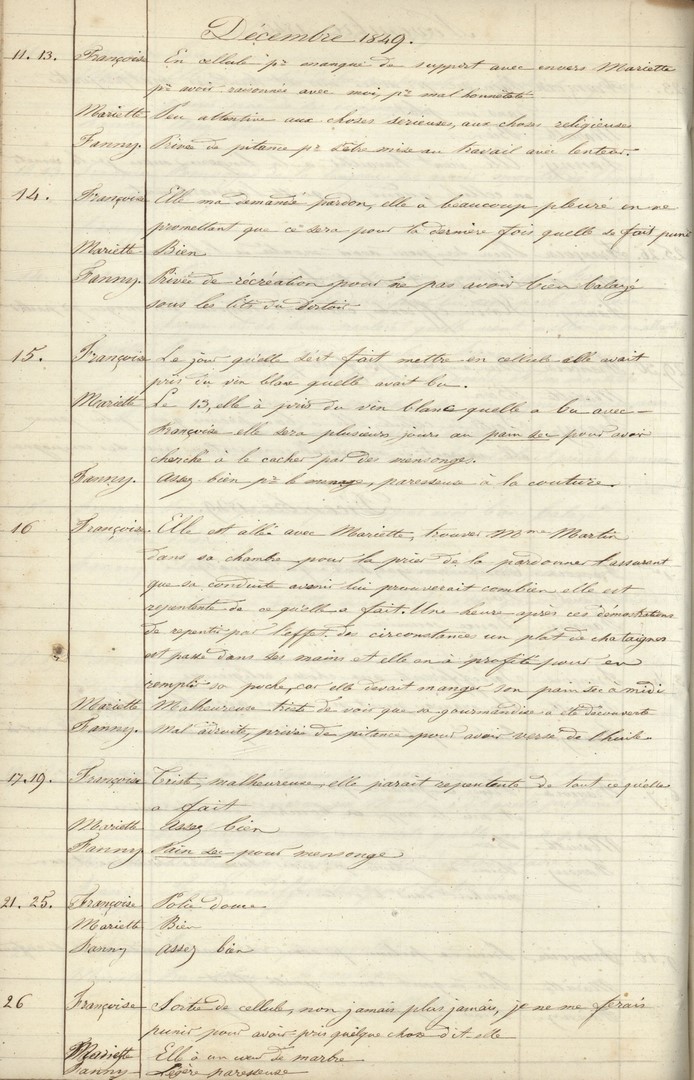 Décembre 1849.
11. 13. Françoise En cellule pr manque de support avec envers Mariette
pr avoir raisonnée avec moi, pr mal honnêteté
Mariette Peu attentive aux choses sérieuses, aux choses religieuses
Fanny. Privée de pitance pr s'etre mise au travail avec lenteur.
14. Françoise Elle ma demandé pardon, elle a beaucoup pleuré en me
promettant que ce sera pour la dernière fois quelle se fait punir
Mariette Bien
Fanny. Privée de récréation pour ne pas avoir bien balayé
sous les lits du dortoir
15. Françoise Le jour qu'elle s'est fait mettre en cellule elle avait
pris du vin blanc quelle avait bu.
Mariette Le 13, elle à pris du vin blanc quelle a bu avec
Françoise elle sera plusieurs jours au pain sec pour avoir
cherché à le cacher par des mensonges.
Fanny. Assez bien pr le menage, paresseuse à la couture.
16 Françoise. Elle est allé avec Mariette, trouver Mme Martin
dans sa chambre pour la prier de la pardonner l'assurant
que sa conduite avenir lui prouverait combien elle est
repentente de ce qu'elle a fait. Une heure après ces démostrations
de repentir par l'effet des circonstances un plat de chataignes
est passé dans ses mains et elle en à profité pour en
remplir sa poche, car elle devait manger son pain sec à midi
Mariette Malheureuse triste de voir que sa gourmandise a été découverte
Fanny. Mal adroite, privée de pitance pour avoir versé de l'huile
17. 19. Françoise Triste, malheureuse, elle parait repentente de tout ce qu'elle
a fait
Mariette Assez bien
Fanny. Pain sec pour mensonge
21. 25. Françoise Polie douce
Mariette Bien
Fanny Assez bien
26 Françoise Sortie de cellule, non jamais plus jamais, je ne me ferais
punir pour avoir pris quelque chose dit-elle
Mariette Elle à un coeur de marbre
Fanny Légère paresseuse